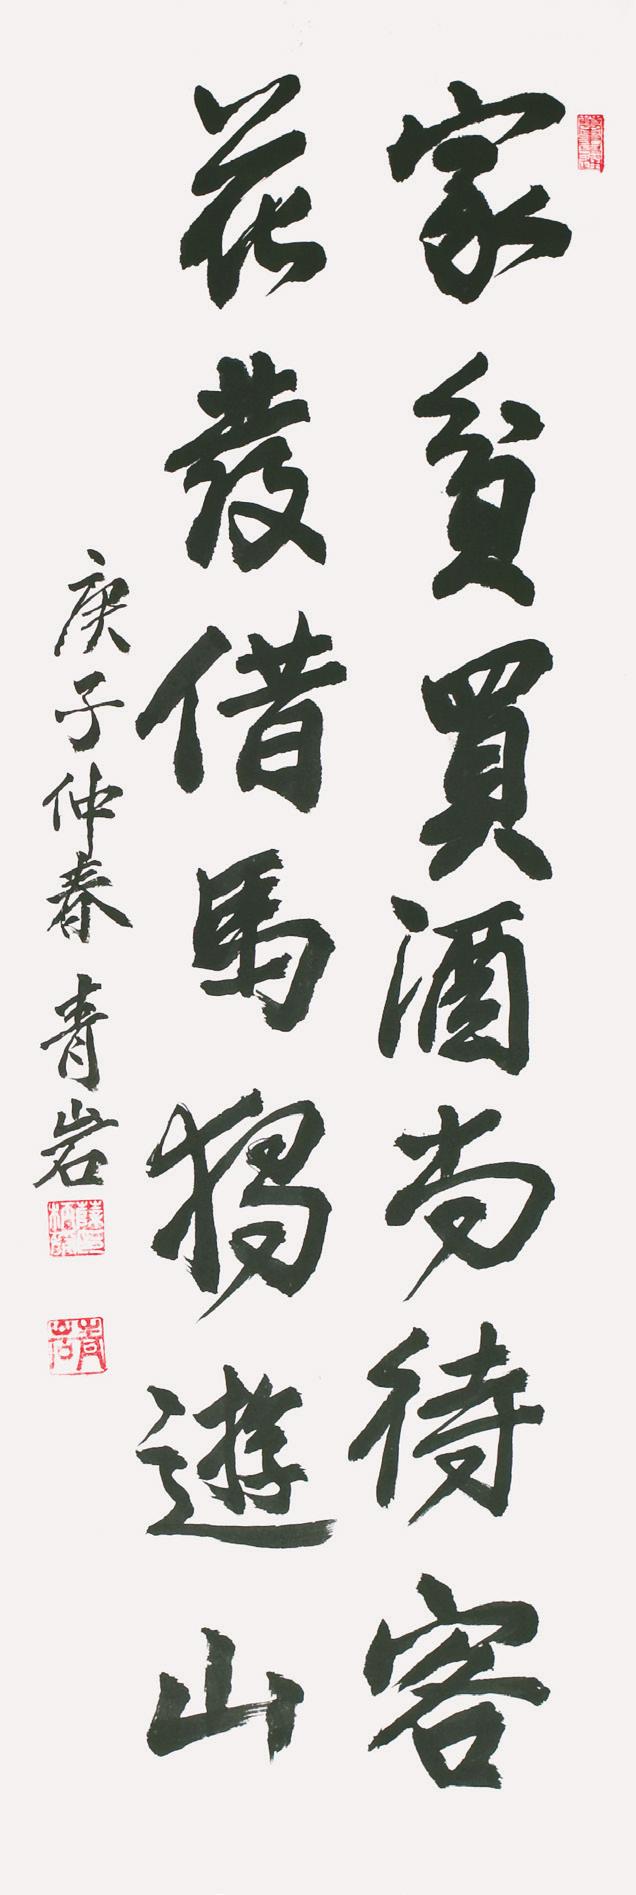 家貧買酒尚待客
花發借馬獨遊山
庚子仲春 青岩
青岩